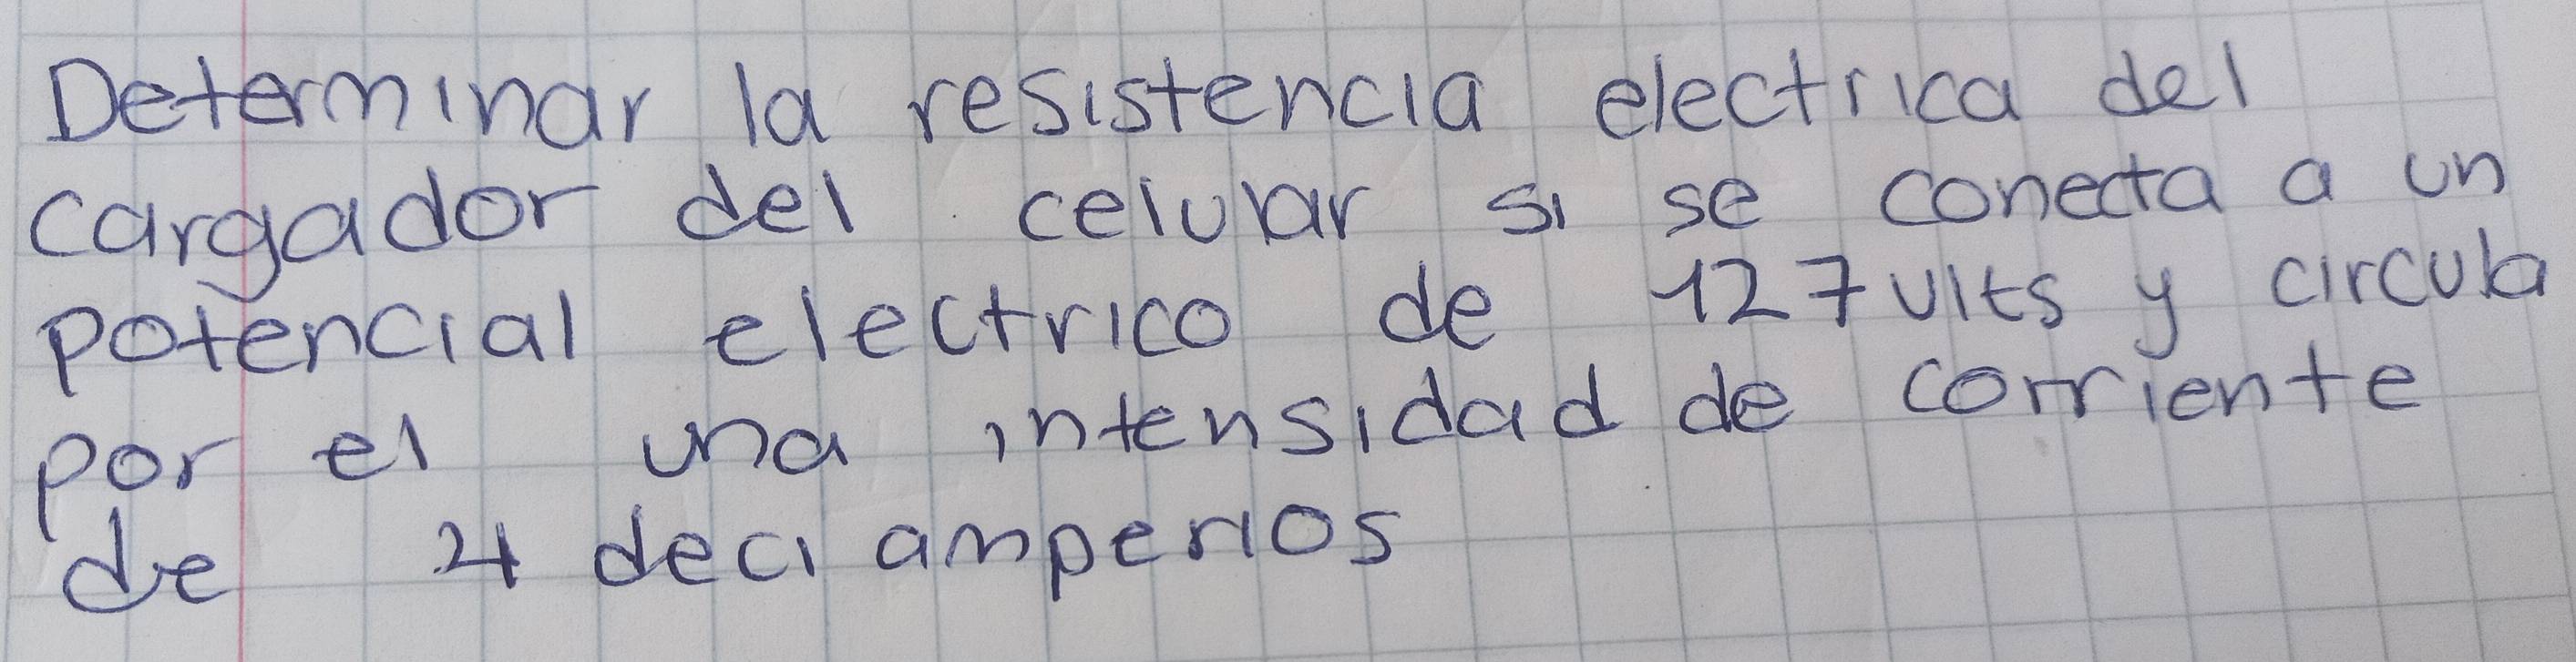 Determinar la resistencia electrica del
cargador del celular si se conecta a un
potencial electrico de 127 vlts y circula
por el una intensidad de corriente
de 4 deci amperios